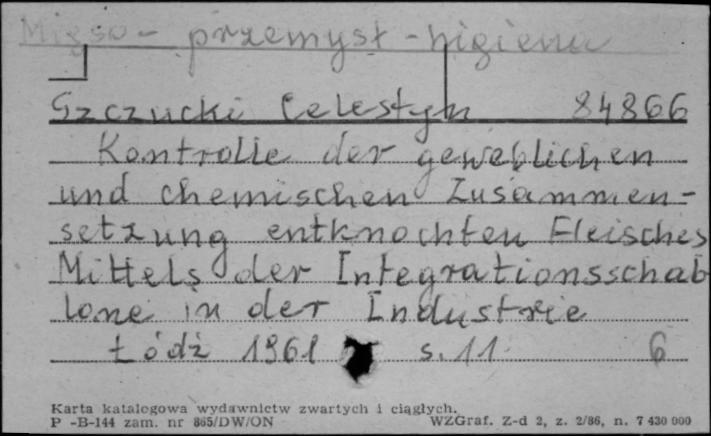 Mięso - przemysł - higiena
Szczucki Celestyn 84866
Kontrolle der geweblichen
und chemischen Zusammen-
setzung entknochten Fleisches
Mittels der Integrationsschab
lone in der Industrie
Łódź 1961 s. 11 6
Karta katalogowa wydawnictw zwartych i ciągłych.
P -B-144 zam. nr 865/DW/ON WZGraf. Z-d 2, z. 2/86, n. 7 430 000